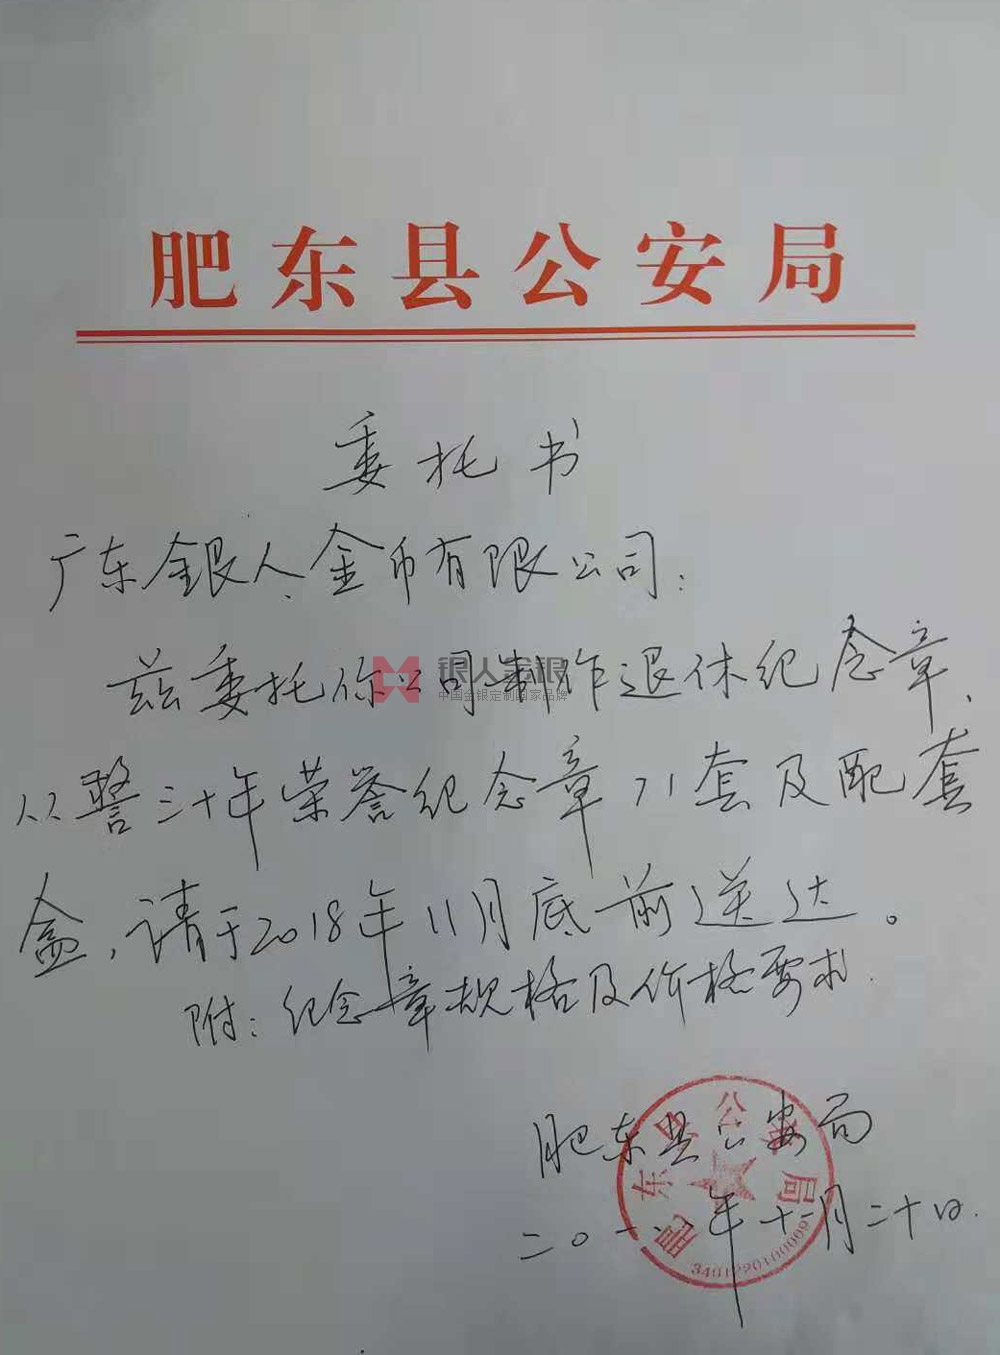 肥东县公安局
委托书
广东銀人金币有限公司：
兹委托你公司制作退休纪念章、
银人金银
中国金银定制国家品牌
从警三十年荣誉纪念章71套及配套
盒，请于2018年11月底前送达。
附：纪念章规格及价格要求.
肥东县公安局
二〇一八年十一月二十日.
肥东县公安局
3401220100009